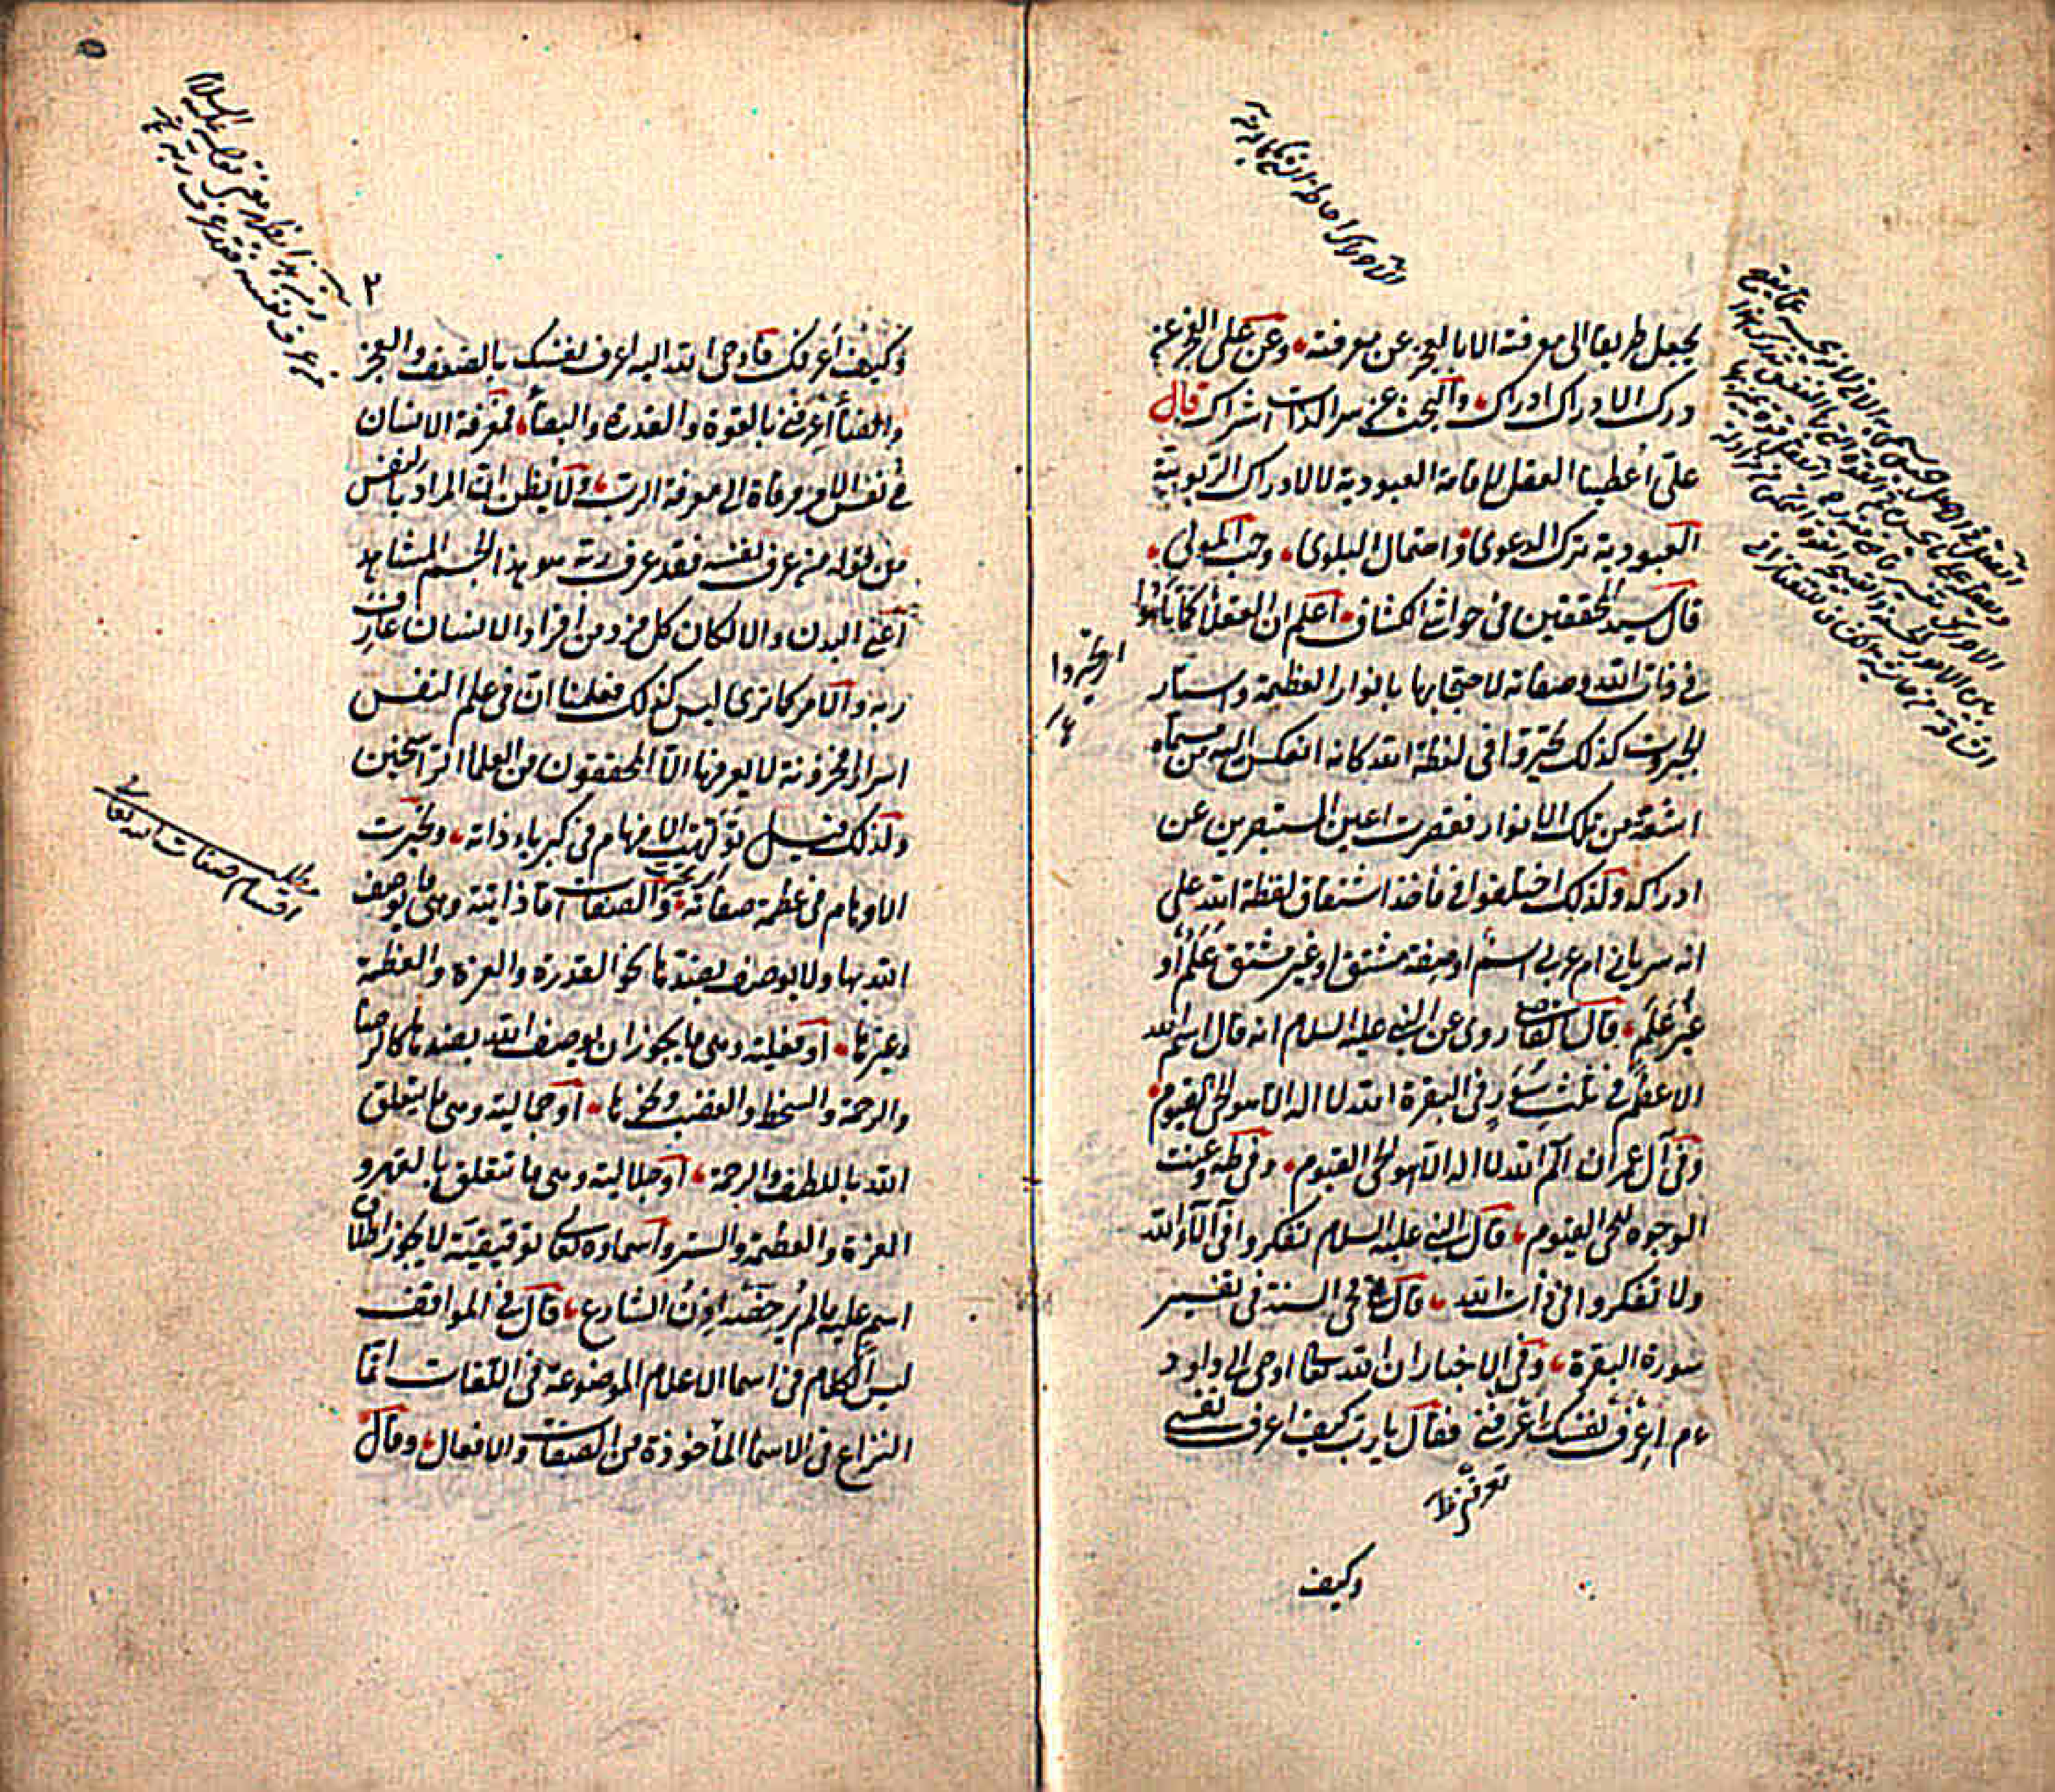 يجعل طريقا الى معرفته الا بالعجز عن معرفته وعن على العجز عن
درك الادراك ادراك والبحث عن سر الذات اشراك قال
على أعطينا العقل لإقامة العبودية لا لادراك الربوبية
العبودية ترك الدعوى واحتمال البلوى وحب المولى
قال سيد المحققين فى حواشى الكشاف اعلم ان العقلأ كما تاهوا
فى ذات الله وصفاته لاحتجابها بانوار العظمة واستار
الجبروت كذلك تحيروا فى لفظة الله كانه انعكس اليه من مسماه
اشعة من تلك الانوار فقصرت اعين المستبصرين عن
ادراكه ولذلك اختلفوا فى مأخذ اشتقاق لفظة الله على
انه سريانى ام عربى اسم او صفة مشتق او غير مشتق علم أو
غير علم قال القاضى روى عن النبى عليه السلام انه قال اسم الله
الاعظم فى ثلث سور فى البقرة الله لا اله الا هو الحى القيوم
وفى آل عمران الم الله لا اله الا هو الحى القيوم وفى طه وعنت
الوجوه للحى القيوم قال النبى عليه السلام تفكروا فى آلاء الله
ولا تفكروا فى ذات الله قال محى السنة فى تفسير
سورة البقرة وفى الاخبار ان الله تعالى اوحى الى داود
عم اعرف نفسك اعرفنى فقال يا رب كيف اعرف نفسى
وكيف
٢
وكيف أعرفك فأوحى الله اليه اعرف نفسك بالضعف والعجز
والفنأ اعرفنى بالقوة والقدرة والبقأ فمعرفة الانسان
فى نفس الامر مرقاة الى معرفة الرب ولا يظن ان المراد بالنفس
من قوله من عرف نفسه فقد عرف ربه هو هذا الجسم المشاهد
اعنى البدن والا لكان كل فرد من افراد الانسان عارف
ربه والامر كما ترى ليس كذلك فعلمنا ان فى علم النفس
اسرار مخزونة لا يعرفها الا المحققون من العلما الراسخين
ولذلك قيل تولهت الافهام فى كبرياء ذاته وتحيرت
الاوهام فى عظمة صفاته والصفات اما ذاتية وهى ما يوصف
الله بها ولا يوصف بضدها نحو القدرة والعزة والعظمة
وغيرها او فعلية وهى ما يجوز ان يوصف الله بضدها كالرضا
والرحمة والسخط والغضب ونحوها او جمالية وهى ما يتعلق
الله باللطف والرحمة او جلالية وهى ما تتعلق بالقهر و
العزة والعظمة والستر واسماؤه تعالى توقيفية لا يجوز اطلاق
اسم عليه ما لم يرد حقه اذن الشارع قال فى المواقف
ليس الكلام فى اسما الاعلام الموضوعة فى اللغات انما
النزاع فى الاسما المأخوذة من الصفات والافعال وقال
مطلب
اقسام صفات الله تعالى